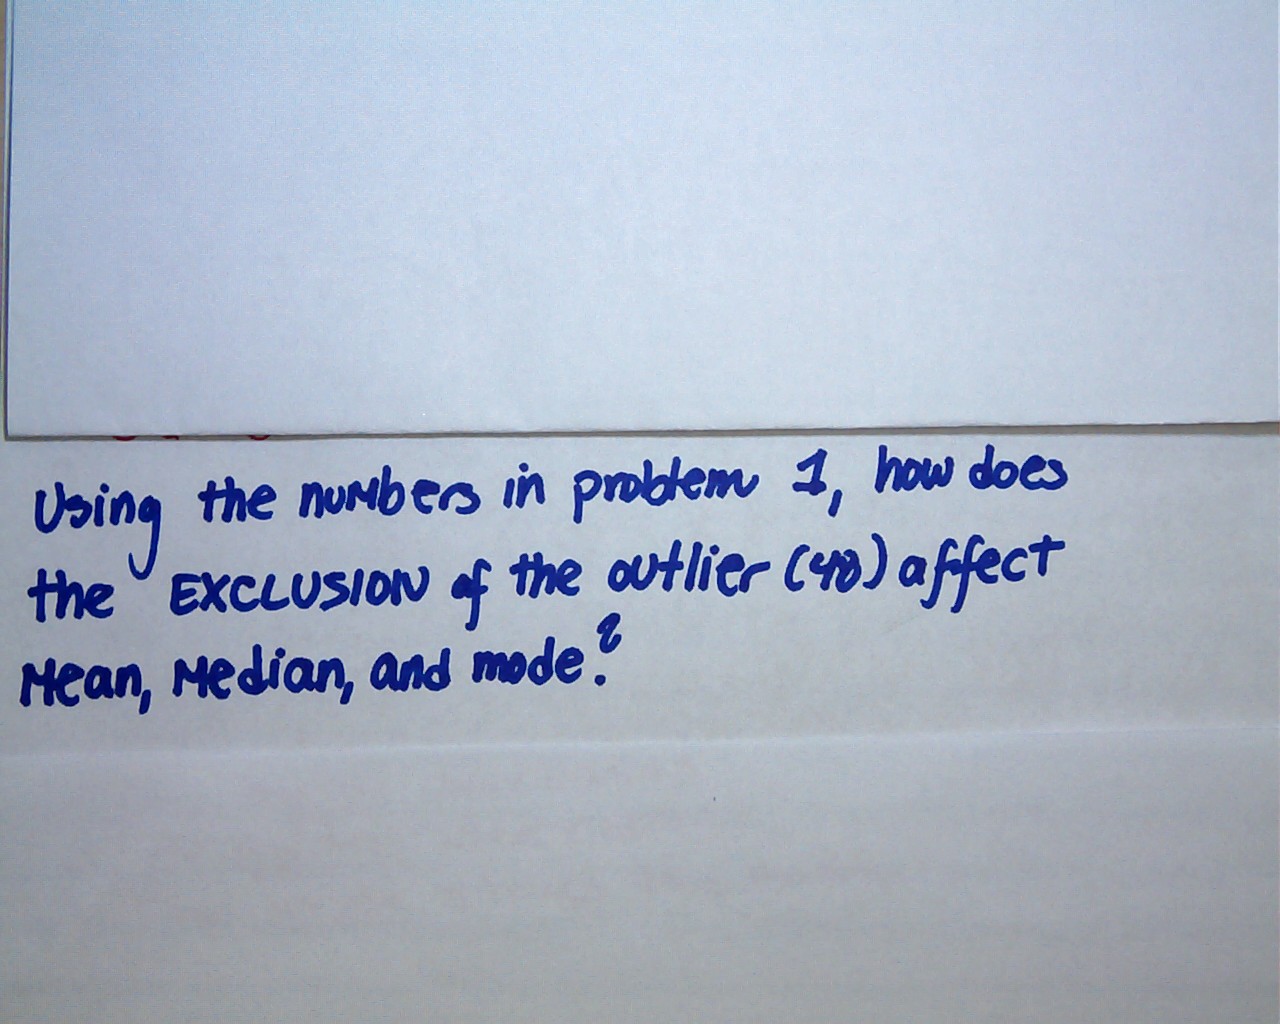 Using the numbers in problem 1, how does
the EXCLUSION of the outlier (40) affect
Mean, Median, and mode?